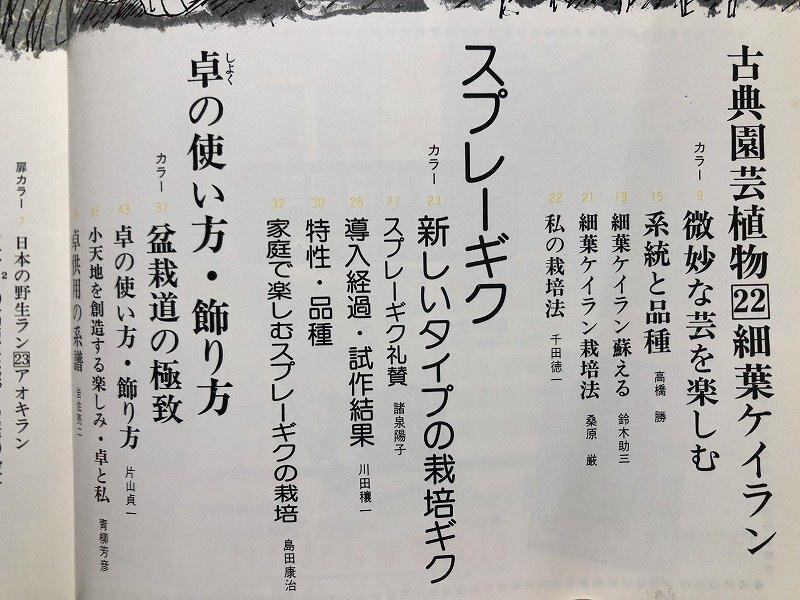 古典園芸植物22細葉ケイラン
カラー 9 微妙な芸を楽しむ
15 系統と品種 高橋 勝
19 細葉ケイラン蘇える 鈴木助三
21 細葉ケイラン栽培法 桑原 厳
22 私の栽培法 千田徳一
スプレーギク
カラー 23 新しいタイプの栽培ギク
27 スプレーギク礼賛 諸泉陽子
28 導入経過・試作結果 川田穰一
30 特性・品種
32 家庭で楽しむスプレーギクの栽培 島田康治
卓の使い方・飾り方
しよく
カラー 37 盆栽道の極致
43 卓の使い方・飾り方 片山貞一
45 小天地を創造する楽しみ・卓と私 青柳芳彦
卓供用の系譜
扉カラー 7 日本の野生ラン23アオキラン